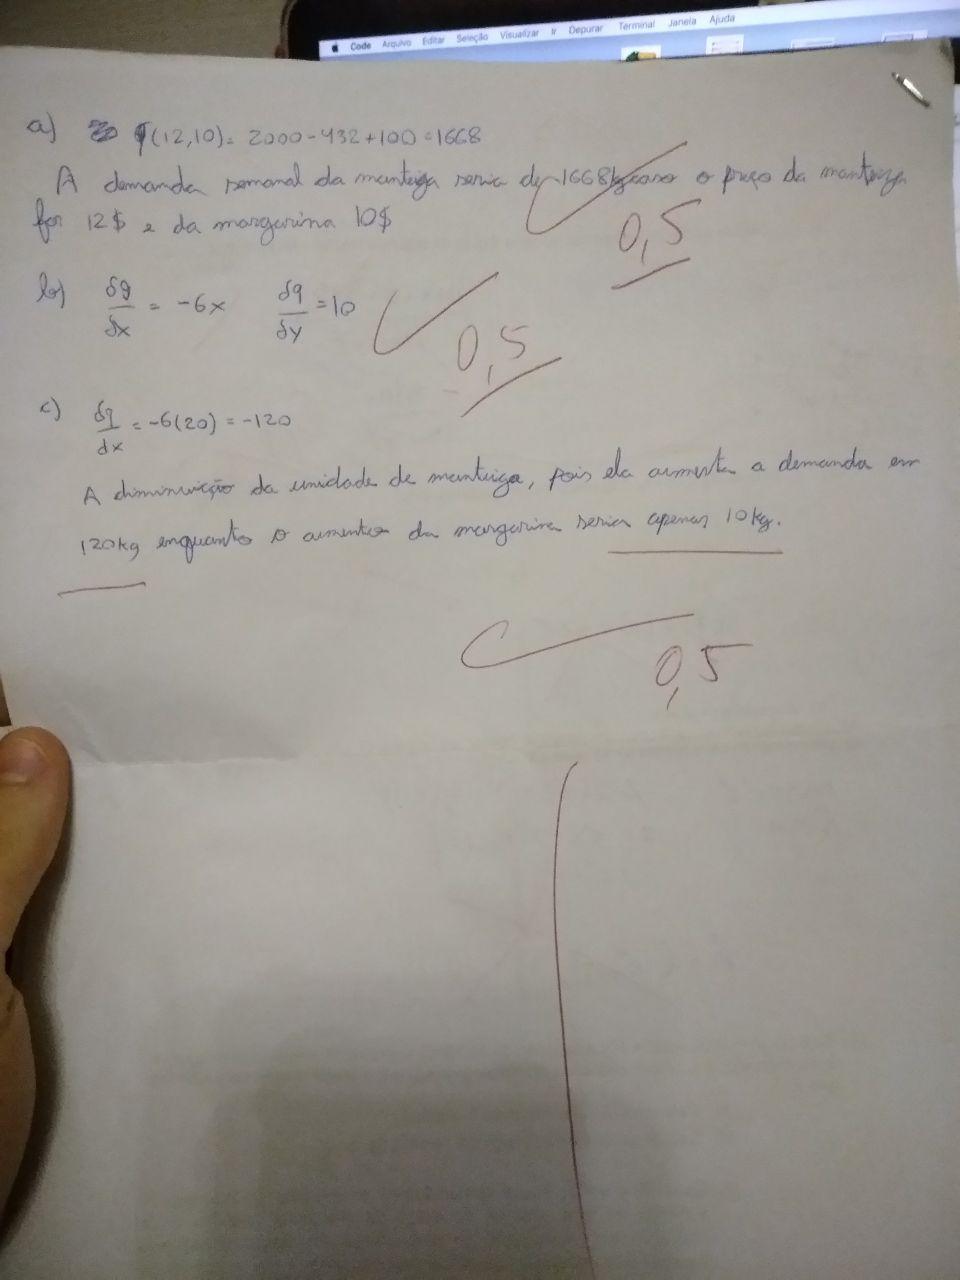 Code Arquivo Editar Seleção Visualizar Ir Depurar Terminal Janela Ajuda
a) q(12,10)= 2000-432+100=1668
A demanda semanal da manteiga seria de 1668kg caso o preço da manteiga
for 12$ e da margarina 10$
0,5
b) δq/δx = -6x δq/δy =10
0,5
c) δq/dx = -6(20) = -120
A diminuição da unidade de manteiga, pois ela aumenta a demanda em
120kg enquanto o aumento da margarina seria apenas 10kg.
0,5